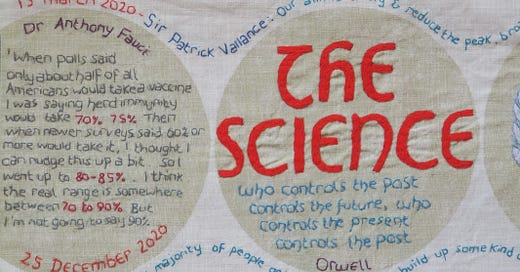 MARCH 2020-
Sir Patrick Vallance: Our
& reduce the peak,
Dr Anthony Fauci
'When polls said
only about half of all
Americans would take a vaccine
I was saying herd immunity
would take 70% 75% Then
when newer surveys said 60% or
more would take it, I thought I
can nudge this up a bit. So I
went up to 80-85%. I think
the real range is somewhere
between 70 to 90%. But
I'm not going to say 90%.
25 DECEMBER 2020
THE
SCIENCE
who controls the past
controls the future, who
controls the present
controls the past
Orwell
majority of people
build up some kind